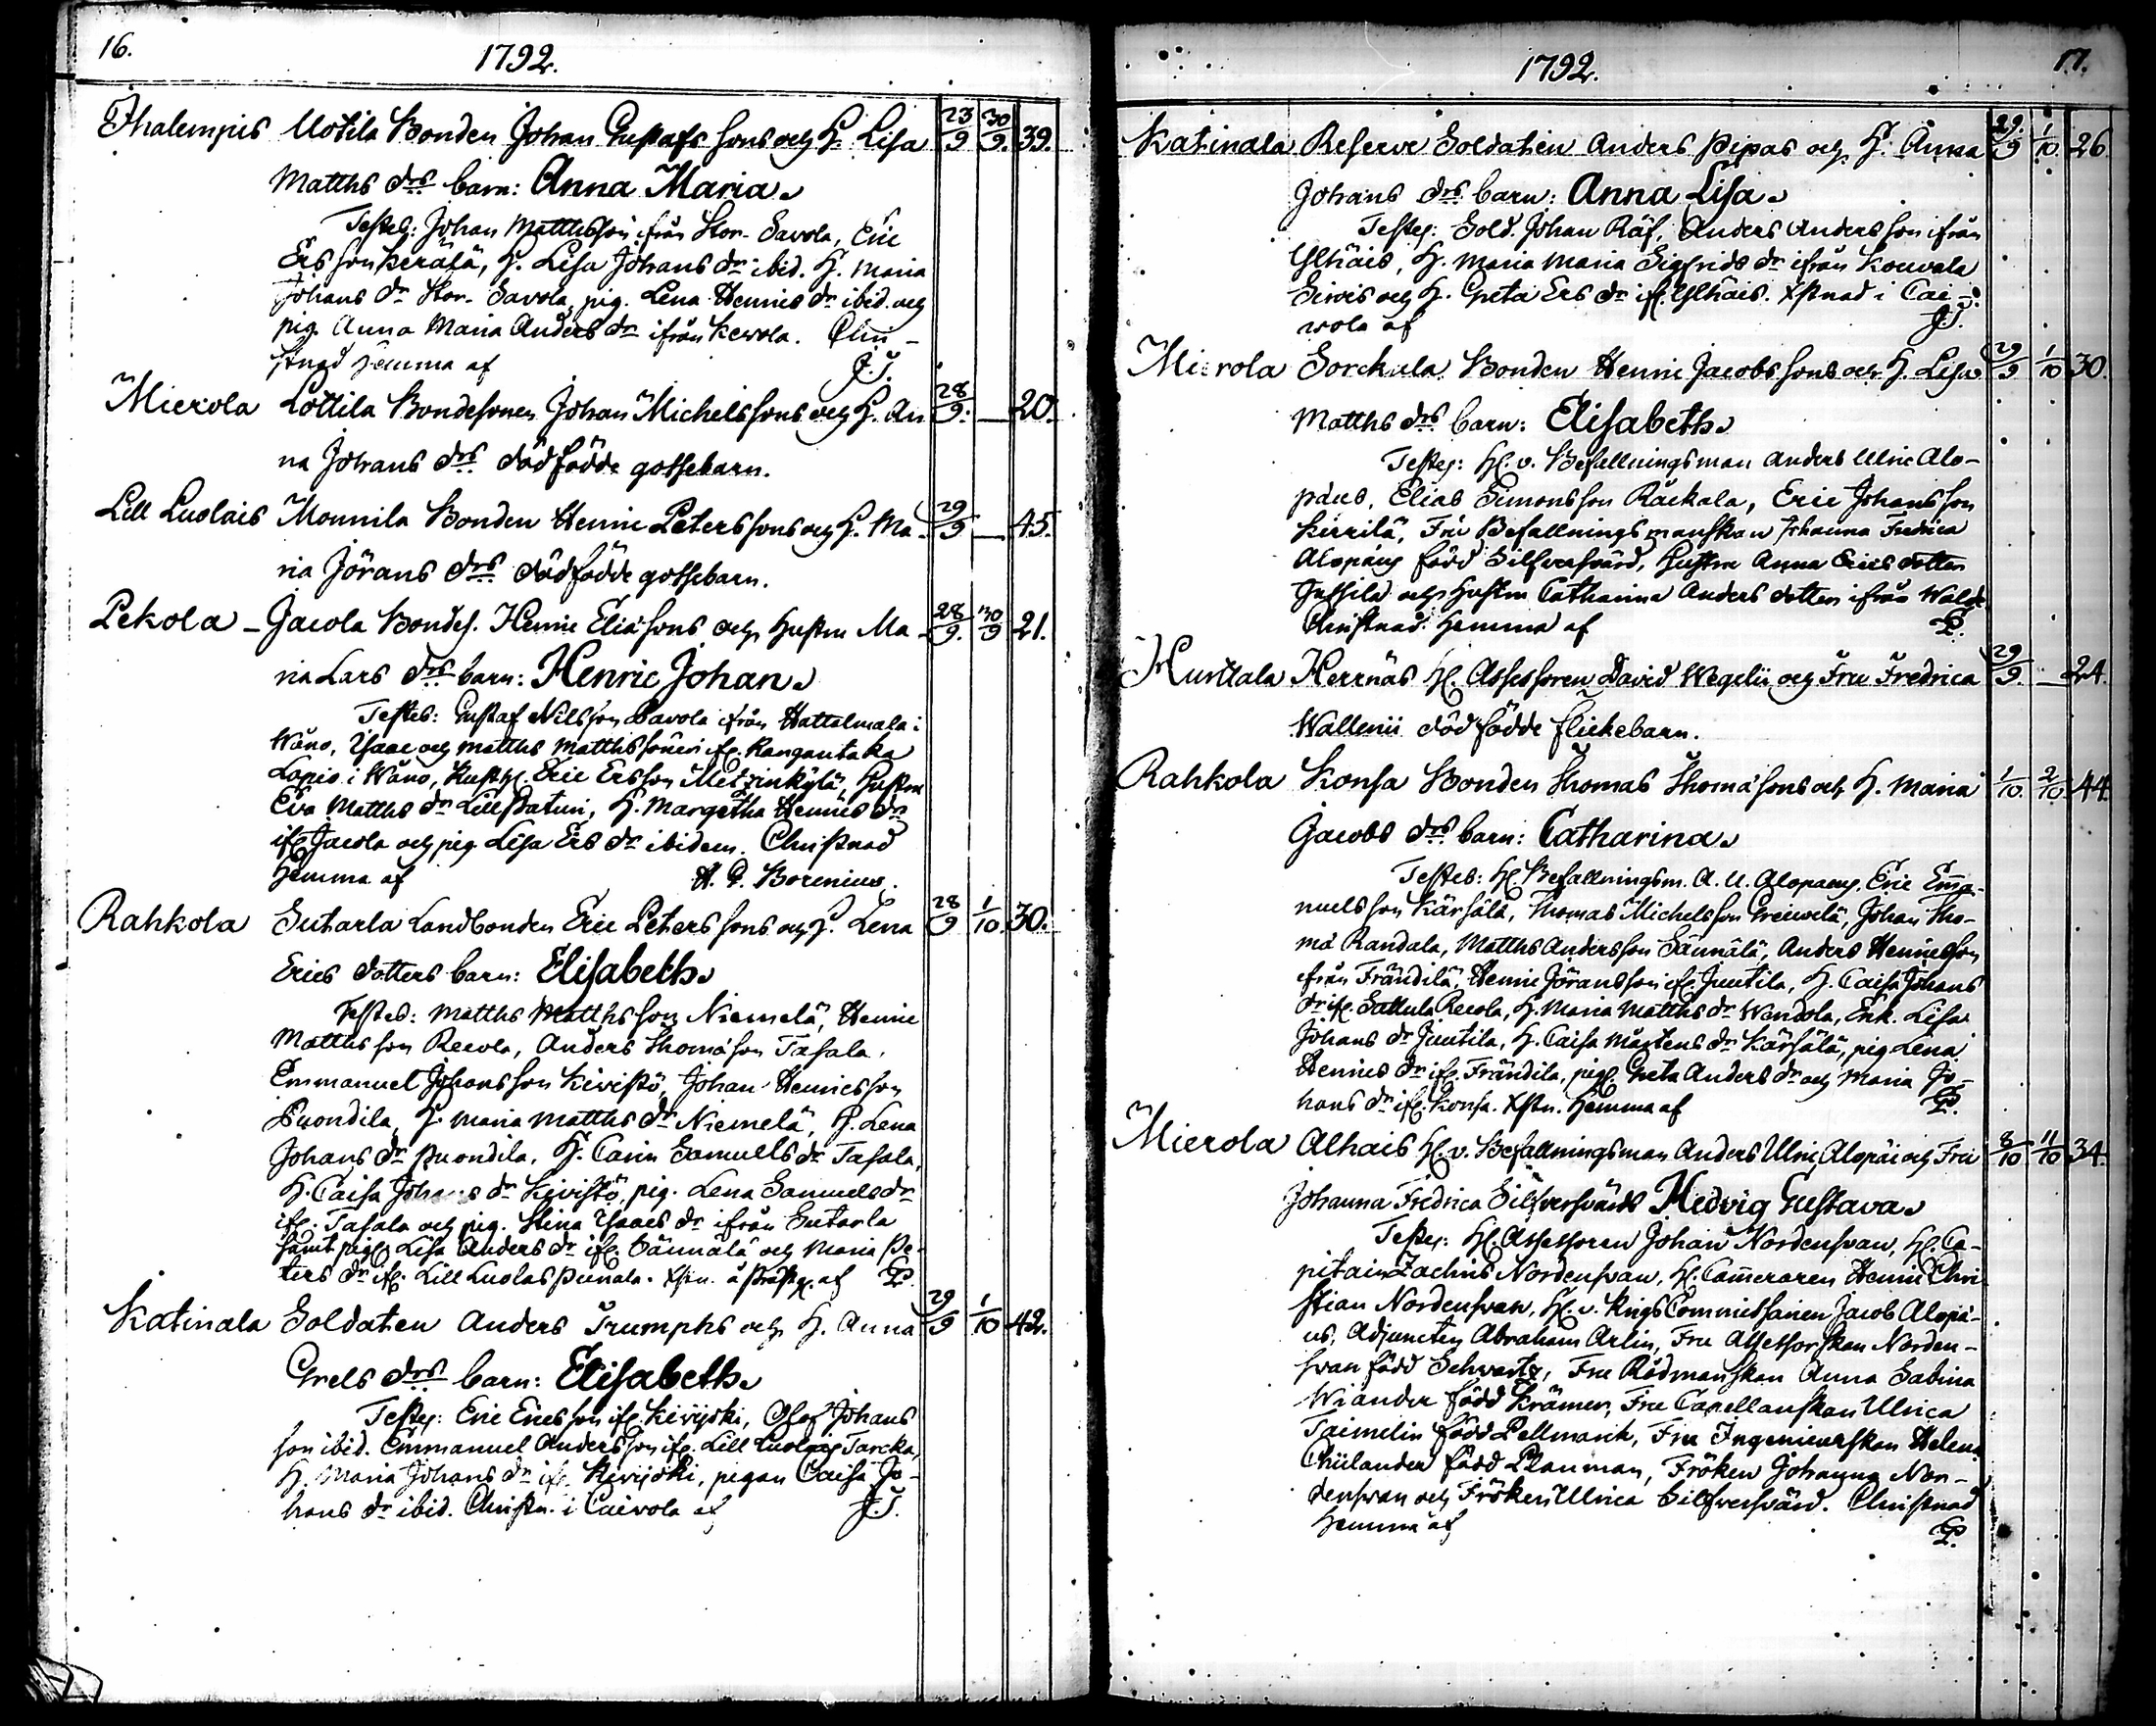 16. 1792.
Thalempis Uotila Bonden Johan Gustafs sons och H. Lisa 23/9 30/9. 39.
Matths drs barn: Anna Maria.
Testes: Johan Matthsson ifrån Stor-Savola, Eric
Ersson Perälä, H. Lisa Johans dr ibid. H. Maria
Johans dr Stor-Savola, pig. Lena Henrics dr ibid. och
pig. Anna Maria Anders dr ifrån Kewola. Chri-
stnad hemma af J.T.
Mierola Lottila Bondesonen Johan Michelssons och H. An 28/9. — 20.
na Johans drs dödfödde gossebarn.
Lill Luolais Mounila Bonden Henric Peterssons och H. Ma- 29/9 — 45.
ria Jörans drs dödfödde gossebarn.
Pekola - Jacola Bondes. Henric Eliæsons och Hustru Ma- 28/9. 30/9 21.
ria Lars drs barn: Henric Johan.
Testes: Gustaf Nilsson Savola ifrån Hattelmala i
Wåno, Isaac och Matths Matthssöner ifr. Rangantaka
Lopis i Wåno, Eric Ersson Metzinkylä, Hustru
Eva Matths dr Lill Paturi, H. Margetha Henrics dr
ifr. Jacola och pig. Lisa Ers dr ibidem. Christnad
hemma af H. G. Borenius.
Rahkola Sutarla Landbonden Eric Peters sons och H. Lena 28/9 1/10. 30.
Erics dotters barn: Elisabeth.
Testes: Matths Matthsson Niemelä, Henric
Matthsson Recola, Anders Thomæson Tafala,
Emmanuel Johansson Kivistö, Johan Henricsson
Puondila, H. Maria Matths dr Niemelä, H. Lena
Johans dr Puondila, H. Carin Samuells dr Tafala,
H. Caisa Johans dr Kivistö, pig. Lena Samuels dr
ifr. Tafala och pig. Stina Isaacs dr ifrån Sutarla
samt pig. Lisa Anders dr ifr. Sännälä och Maria Pe-
ters dr ifr. Lill Luolas Punala. Xstn. å Prästg. af
Katinala Soldaten Anders Trumphs och H. Anna 29/9 1/10 42.
Grels drs barn: Elisabeth.
Testes: Eric Ericsson ifr. Kirijoki, Olof Johans
son ibid. Emmanuel Andersson ifr. Lill Luolais Tarcka,
H. Maria Johans dr ifr. Kirijoki, pigan Caisa Jo-
hans dr ibid. Christn. i Caivola af J.T.
1792. 17.
Katinala Reserve Soldaten Anders Pipas och H. Anna 29./9 1/10. 26.
Johans drs barn: Anna Lisa.
Testes: Sold. Johan Räf, Anders Andersson ifrån
Ylhäis, H. Maria Maria Sigfrids dr ifrån Kouvala
Sirvis och H. Greta Ers dr ifr. Ylhäis. Xstnad i Cai-
wola af J.T.
Mierola Sorckula Bonden Henric Jacobs sons och H. Lisa 29/9 1/10 30.
Matths drs barn: Elisabeth.
Testes: H. v. Befallningsman Anders Ulric Alo-
pæus, Elias Simonsson Räckala, Eric Johansson
Kirrilä, Fru Befallningsmanskan Johanna Fredrica
Alopæus född Silfversvärd, Hustru Anna Erics dotter
Jussila och Hustru Catharina Anders dotter ifrån
Christnad hemma af
Hurttala Herrnäs H. Assessoren David Wegelii och Fru Fredrica 29/9. — 24.
Wallenii dödfödde flickebarn.
Rahkola Konsa Bonden Thomas Thomæ sons och H. Maria 1/10. 2/10. 44.
Jacobs drs barn: Catharina.
Testes: H. Befallningsm. A. U. Alopæus, Eric Ema-
nuelsson Kärsälä, Thomas Michelsson, Johan Tho-
mæ Randala, Matths Andersson Sännälä, Anders Henricsson
ifrån Frändilä, Henric Jöransson ifr. Juutila, H. Caisa Johans
dr ifr. Sattula Recola, H. Maria Matths dr, Enk. Lisa
Johans dr Juutila, H. Caisa Mårtens dr Kärsälä, pig. Lena
Henrics dr ifr. Frändila, pig. Greta Anders dr och Maria Jo-
hans dr ifr. Konsa. Xstn. hemma af
Mierola Alhais H. v. Befallningsman Anders Ulric Alopæi och Fru 8/10 11/10 34.
Johanna Fredrica Silfversvärds Hedvig Gustava.
Testes: H. Assessoren Johan Nordensvan, H. Ca-
pitain Zachris Nordensvan, H. Cameraren Henric Chri
stian Nordensvan, H. v. KrigsCommissarien Jacob Alopæ-
us, Adjuncten Abraham Arlin, Fru Assessorskan Norden-
svan född Schwartz, Fru Rådmanskan Anna Sabina
Wiander född Krämer, Fru Capellanskan Ulrica
Taimelin född Pellmarck, Fru Ingenieurskan Helena
Chiilander född Plauman, Fröken Johanna Nor-
densvan och Fröken Ulrica Silfversvärd. Christnad
hemma af